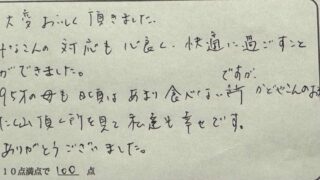 大変おいしく頂きました。
みなさんの対応も心良く、快適に過ごすこと
ができました。
ですが、
95才の母も日頃はあまり食べない かどやさんのお
たくさん頂く所を見て私達も幸せです。
ありがとうございました。
10点満点で 100 点